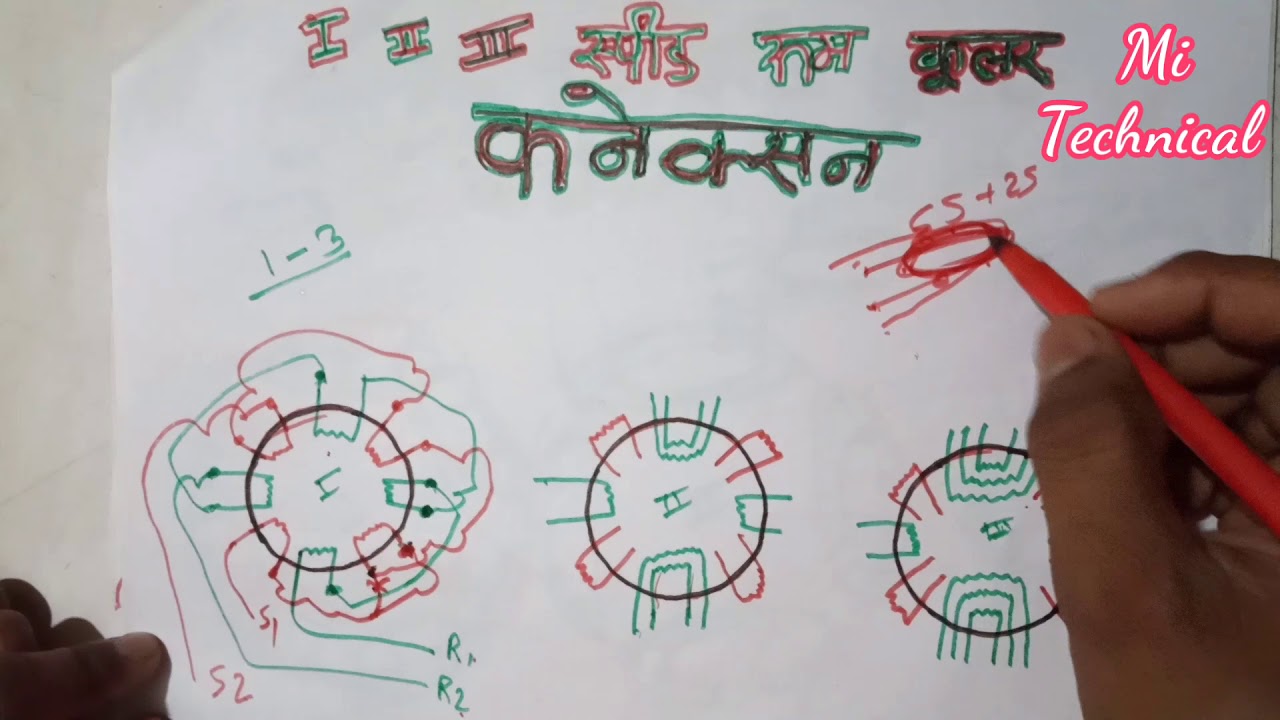 I II III स्पीड रूम कूलर
कनेक्सन
Mi
Technical
CS + 2S
1 - 3
I
II
III
S1
S2
R1
R2